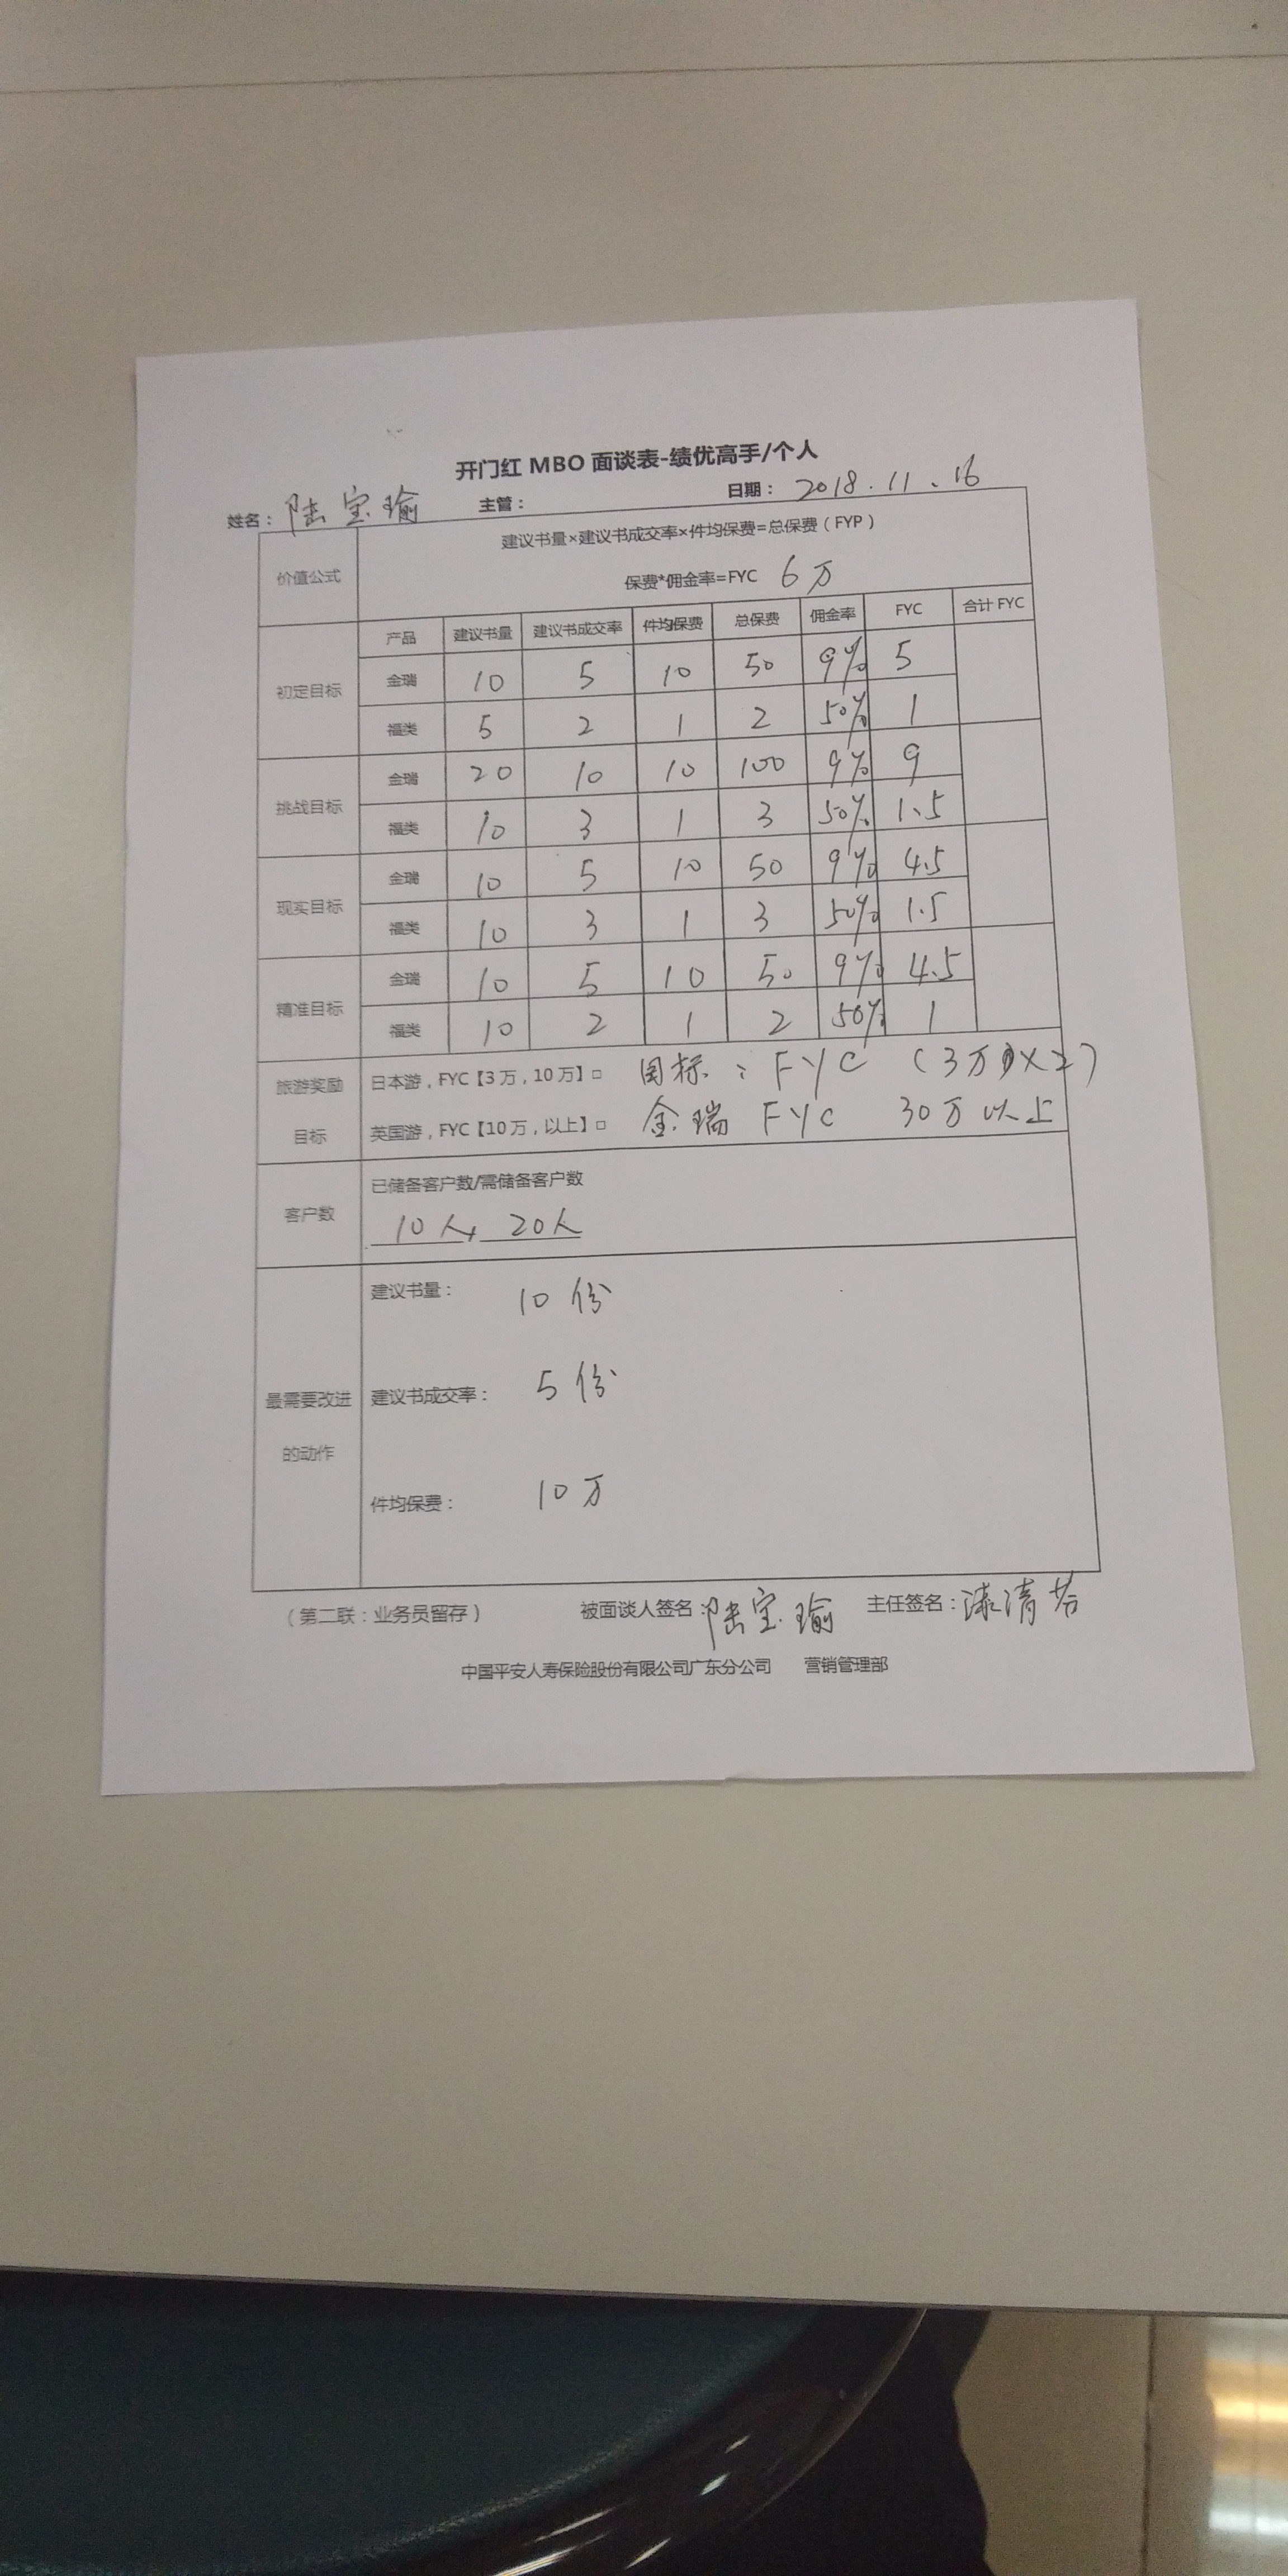 开门红 MBO 面谈表-绩优高手/个人
姓名： 陆宝瑜 主管： 日期： 2018.11.16
价值公式 建议书量×建议书成交率×件均保费=总保费（FYP）
保费*佣金率=FYC 6万
产品 建议书量 建议书成交率 件均保费 总保费 佣金率 FYC 合计 FYC
初定目标 金瑞 10 5 10 50 9% 5
福类 5 2 1 2 50% 1
挑战目标 金瑞 20 10 10 100 9% 9
福类 10 3 1 3 50% 1.5
现实目标 金瑞 10 5 10 50 9% 4.5
福类 10 3 1 3 50% 1.5
精准目标 金瑞 10 5 10 50 9% 4.5
福类 10 2 1 2 50% 1
旅游奖励目标 日本游，FYC【3万，10万】□ 国标：FYC （3万×2）
英国游，FYC【10万，以上】□ 金瑞 FYC 30万以上
客户数 已储备客户数/需储备客户数
10人, 20人
最需要改进的动作 建议书量： 10份
建议书成交率： 5份
件均保费： 10万
（第二联：业务员留存） 被面谈人签名：陆宝瑜 主任签名：清芬
中国平安人寿保险股份有限公司广东分公司 营销管理部